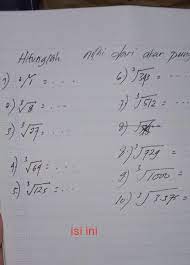 Hitunglah nilai dari akar pang
1) ³√1 = ...
2) ³√8 = ...
3) ³√27 = ...
4) ³√64 = ...
5) ³√125 = ...
6) ³√343 = ...
7) ³√512 = ...
8) ³√729 = ...
9) ³√1000 = ...
10) ³√3.375 =
isi ini